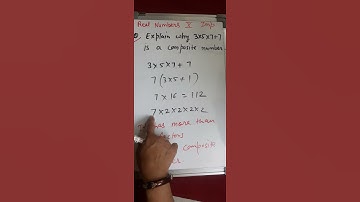 Real Numbers X Imp
Q. Explain why 3x5x7+7
is a composite number.
3x5x7+7
7(3x5+1)
7x16=112
7x2x2x2x2
has more than
composite